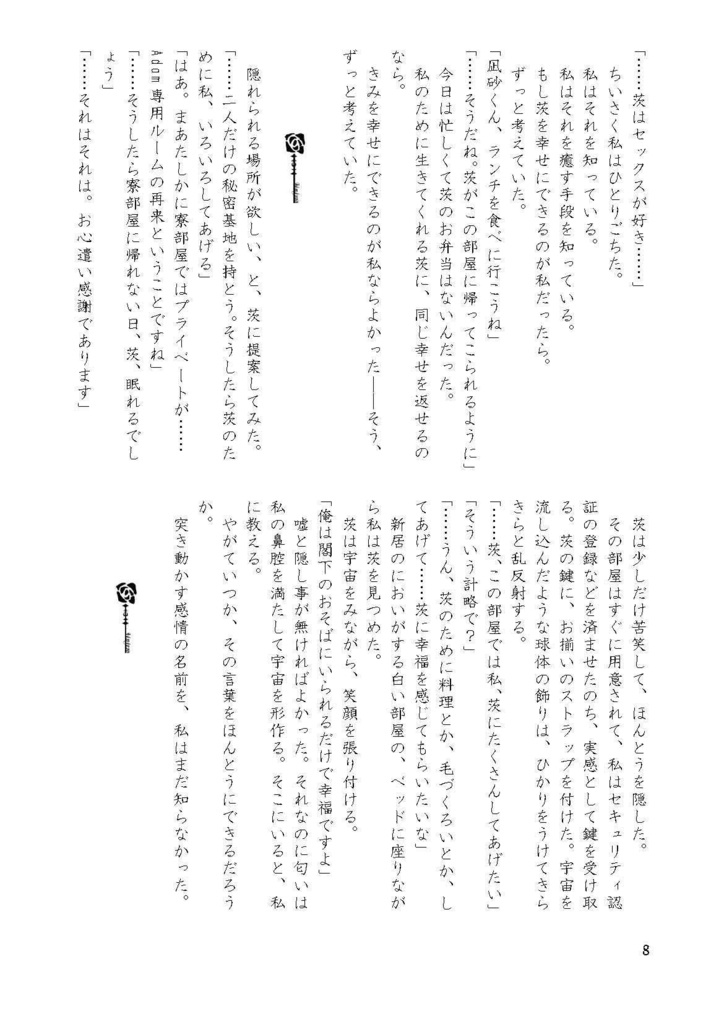 「……茨はセックスが好き……」
　ちいさく私はひとりごちた。
　私はそれを知っている。
　私はそれを癒す手段を知っている。
　もし茨を幸せにできるのが私だったら。
　ずっと考えていた。
「凪砂くん、ランチを食べに行こうね」
「……そうだね。茨がこの部屋に帰ってこられるように」
　今日は忙しくて茨のお弁当はないんだった。
　私のために生きてくれる茨に、同じ幸せを返せるの
なら。
　きみを幸せにできるのが私ならよかった――そう、
ずっと考えていた。
　隠れられる場所が欲しい、と、茨に提案してみた。
「……二人だけの秘密基地を持とう。そうしたら茨のた
めに私、いろいろしてあげる」
「はあ。まあたしかに寮部屋ではプライベートが……
Adam専用ルームの再来ということですね」
「……そうしたら寮部屋に帰れない日、茨、眠れるでし
ょう」
「……それはそれは。お心遣い感謝であります」
　茨は少しだけ苦笑して、ほんとうを隠した。
　その部屋はすぐに用意されて、私はセキュリティ認
証の登録などを済ませたのち、実感として鍵を受け取
る。茨の鍵に、お揃いのストラップを付けた。宇宙を
流し込んだような球体の飾りは、ひかりをうけてきら
きらと乱反射する。
「……茨、この部屋では私、茨にたくさんしてあげたい」
「そういう計略で？」
「……うん、茨のために料理とか、毛づくろいとか、し
てあげて……茨に幸福を感じてもらいたいな」
　新居のにおいがする白い部屋の、ベッドに座りなが
ら私は茨を見つめた。
　茨は宇宙をみながら、笑顔を張り付ける。
「俺は閣下のおそばにいられるだけで幸福ですよ」
　嘘と隠し事が無ければよかった。それなのに匂いは
私の鼻腔を満たして宇宙を形作る。そこにいると、私
に教える。
　やがていつか、その言葉をほんとうにできるだろう
か。
　突き動かす感情の名前を、私はまだ知らなかった。
8